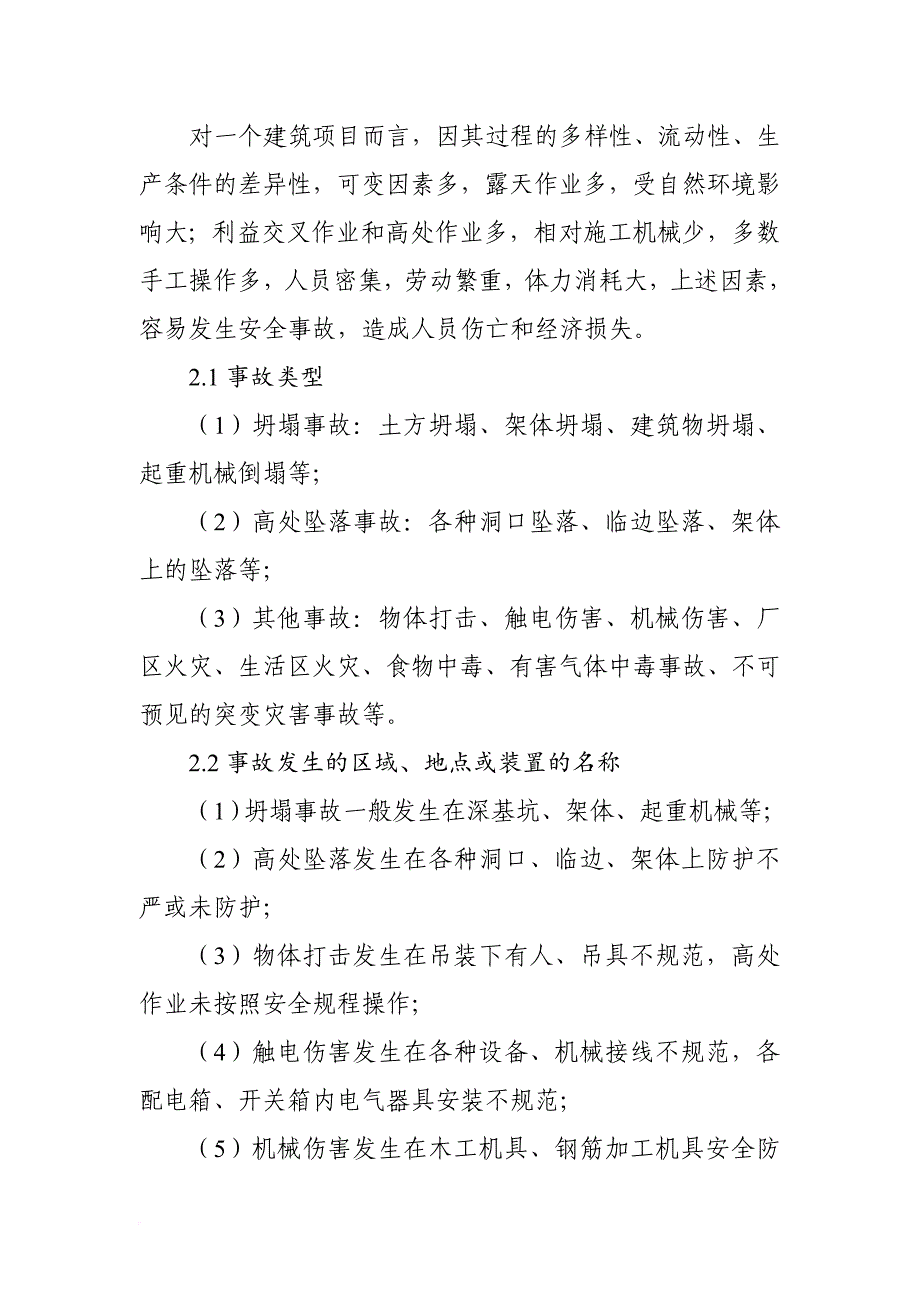 对一个建筑项目而言，因其过程的多样性、流动性、生
产条件的差异性，可变因素多，露天作业多，受自然环境影
响大；利益交叉作业和高处作业多，相对施工机械少，多数
手工操作多，人员密集，劳动繁重，体力消耗大，上述因素，
容易发生安全事故，造成人员伤亡和经济损失。
2.1 事故类型
（1）坍塌事故：土方坍塌、架体坍塌、建筑物坍塌、
起重机械倒塌等；
（2）高处坠落事故：各种洞口坠落、临边坠落、架体
上的坠落等；
（3）其他事故：物体打击、触电伤害、机械伤害、厂
区火灾、生活区火灾、食物中毒、有害气体中毒事故、不可
预见的突变灾害事故等。
2.2 事故发生的区域、地点或装置的名称
（1）坍塌事故一般发生在深基坑、架体、起重机械等；
（2）高处坠落发生在各种洞口、临边、架体上防护不
严或未防护；
（3）物体打击发生在吊装下有人、吊具不规范，高处
作业未按照安全规程操作；
（4）触电伤害发生在各种设备、机械接线不规范，各
配电箱、开关箱内电气器具安装不规范；
（5）机械伤害发生在木工机具、钢筋加工机具安全防